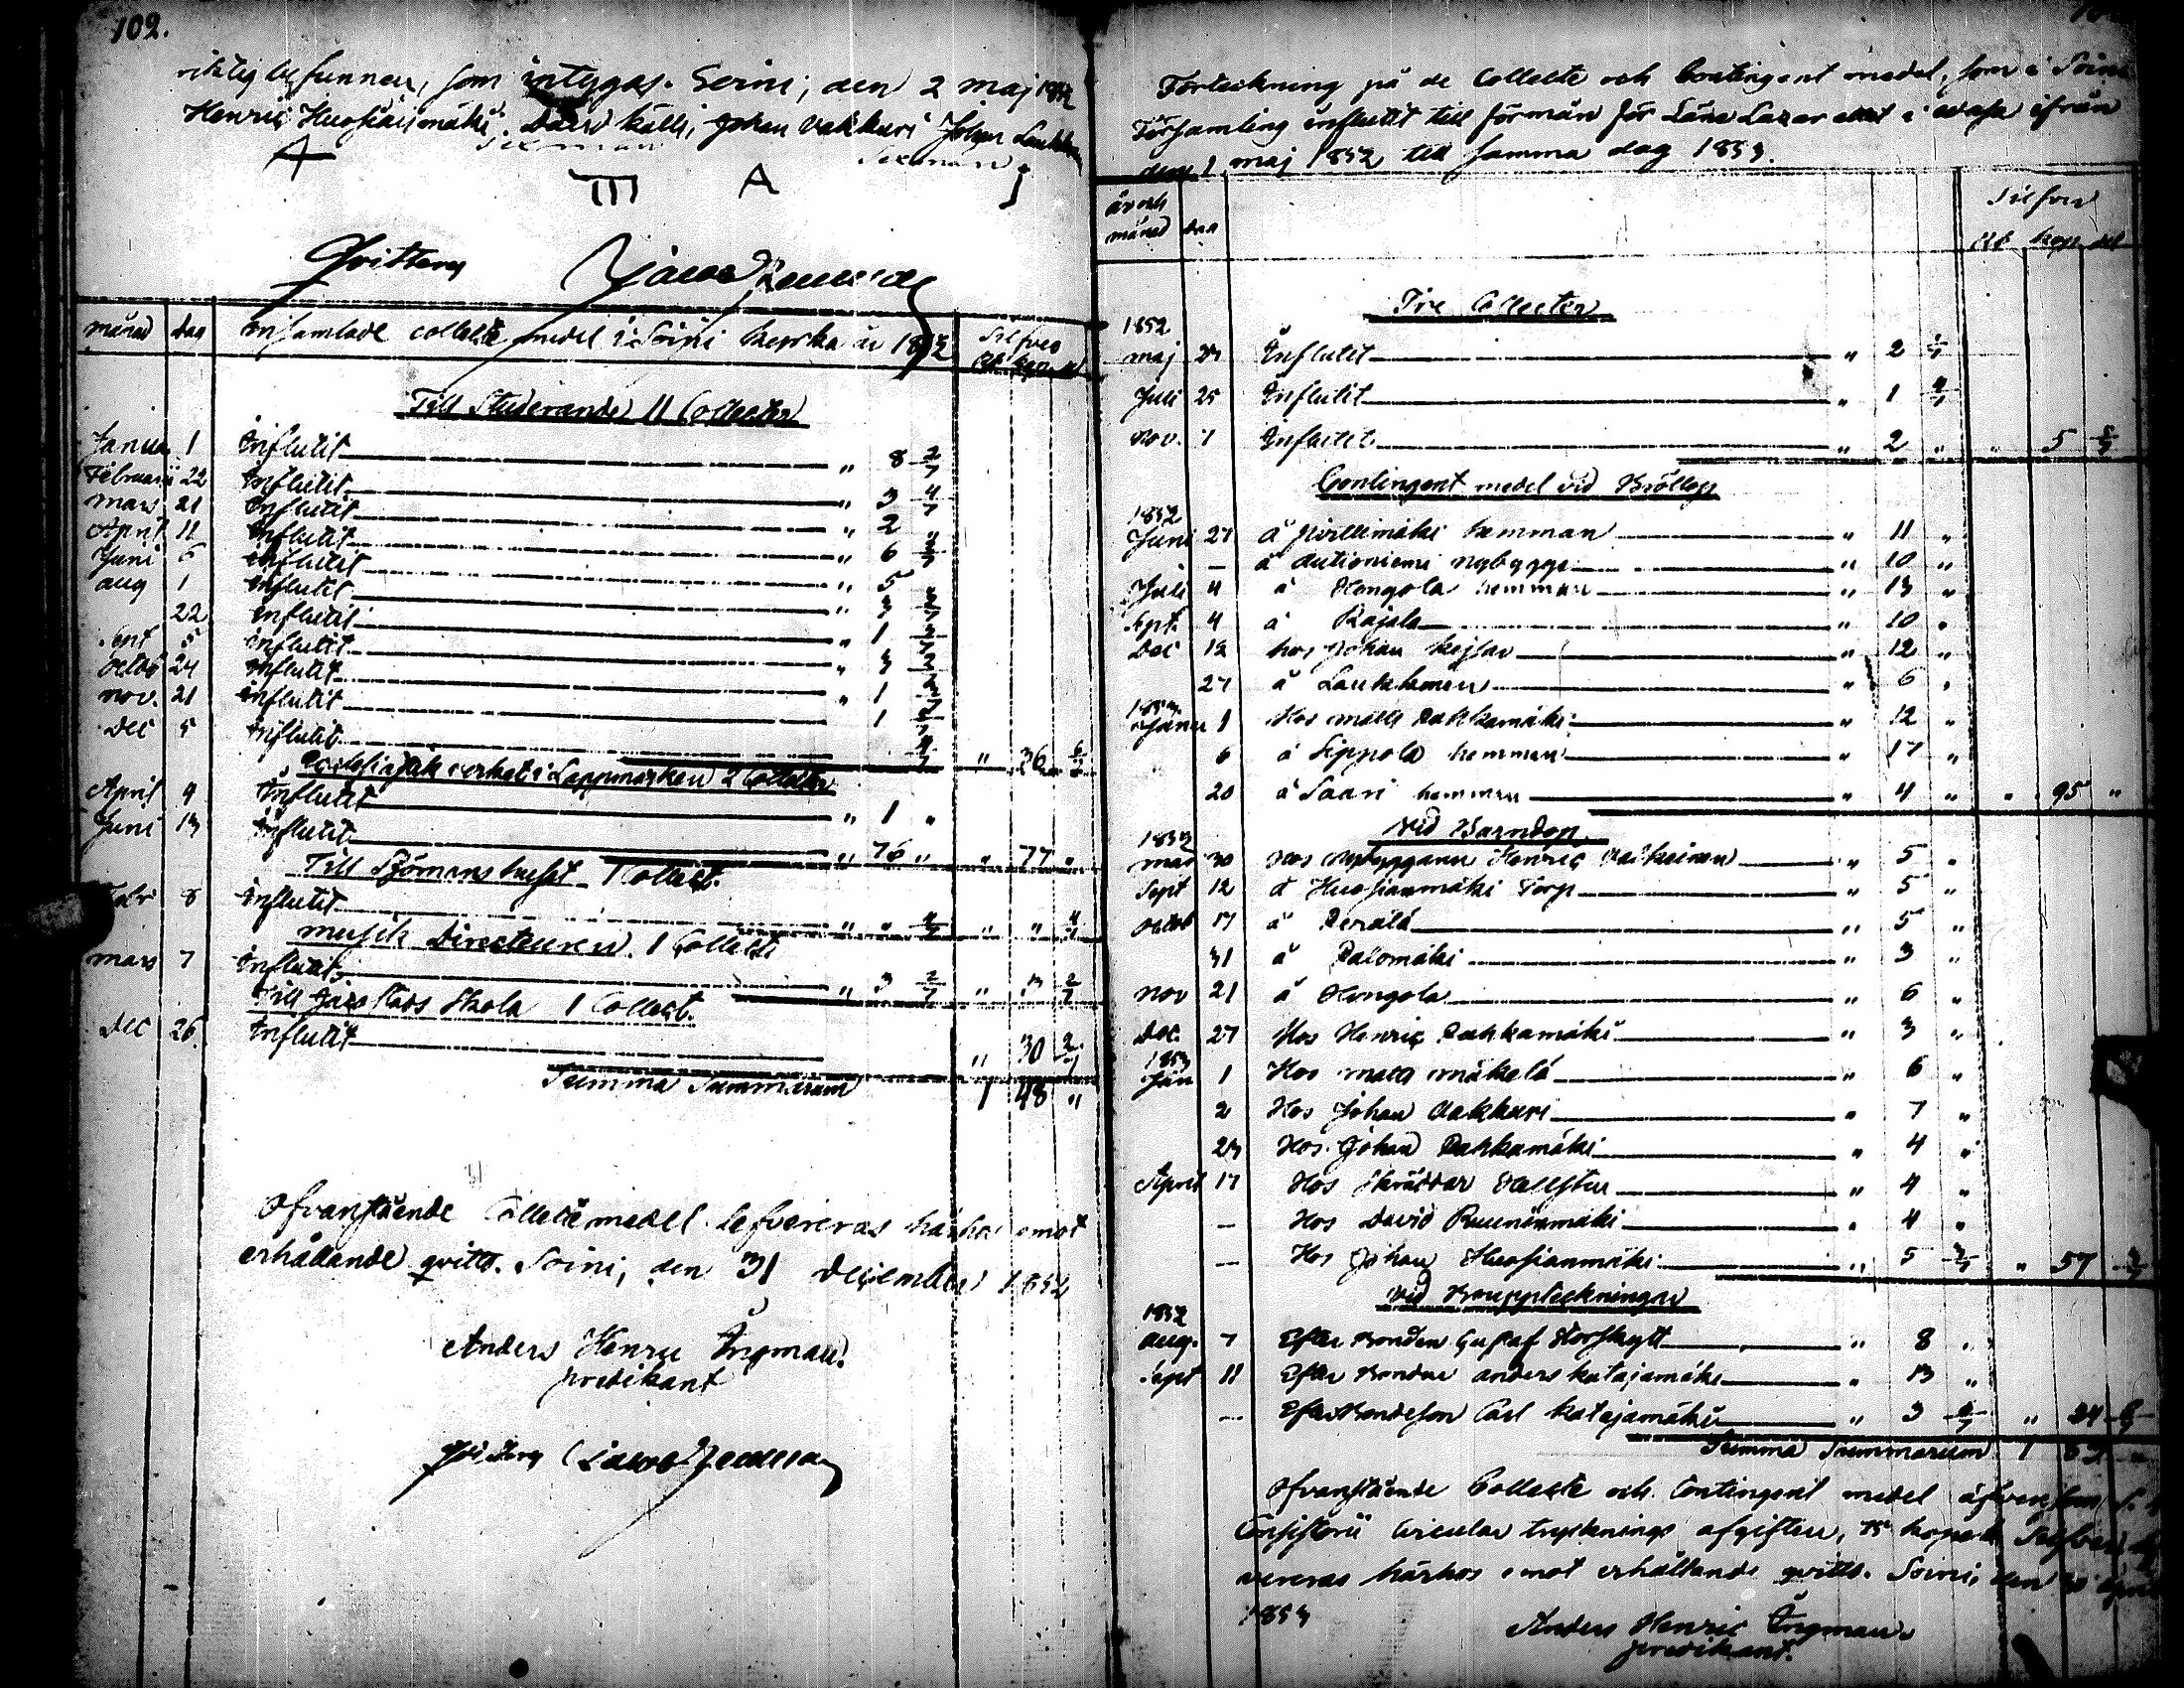 102.
riktig befunnen, som intygas. Soini, den 2 maj 1852
Henric Huosianmäki. David Källi, Johan Vakkuri Johan
Sexman Sexman
Qvitteras
månad dag Insamlade collecte medel i Soini kyrka år 1852 Silfver
Rb kop. dl
Till Studerande 11 Collecter
Janua 1 Influtit " 8 2/7
Februarii 22 Influtit " 3 4/7
mars 21 Influtit " 2
April 11 Influtit " 6
Juni 6 Influtit " 5
aug 1 Influtit " 3
22 Influtit " 1
Sept 5 Influtit " 3
Octob 24 Influtit " 1
nov. 21 Influtit 1
Dec 5 Influtit 4/7 " 26 6/7
Ecclesiastik verket i Lappmarken 2 Collecter
April 9 Influtit " 1 "
Juni 13 Influtit " 76 " " 77 "
Till Sjömanshuset 1 Collect.
Febr 8 Influtit " " 4/7 " " 4/7
musik Directeuren. 1 Collect
mars 7 Influtit " 3 2/7 " 3 2/7
Till Stads Skola 1 Collect.
Dec 26. Influtit " 30 2/7
Summa Summarum 1 48 "
Ofvanstående Collecte medel lefvereras härhos emot
erhållande qvitto. Soini, den 31 December 1852
Anders Henric Ingman.
predikant
Förteckning på de Collecte och Contingent medel, som i Soini
Församling influtit till förmån för Läns Lazarettet i Wasa ifrån
den 1 maj 1852 till samma dag 1853.
år och månad dag Silfver
Rb kop. dl
Tre Collecter
1852
maj 23 Influtit " 2 1/7
Juli 25 Influtit " 1 4/7
Nov. 7 Influtit " 2 " " 5 5/7
Contingent medel vid Bröllop
1852
Juni 27 å hemman " 11 "
— å Autioniemi nybygge " 10 "
Juli 4 å Hongola hemman " 13 "
Sept. 4 å Rajala " 10 "
Dec 12 hos Johan Keisar " 12 "
27 å Laukkonen " 6 "
1853
Janu 1 Hos Matts Pahkamäki " 12 "
6 å Sippola hemman " 17 "
20 å Saari hemman " 4 " " 95 "
Vid Barndop.
1852
maj 30 Hos Nybyggaren Henric " 5 "
Sept 12 å Huosianmäki Torp " 5 "
Octob 17 å Perälä " 5 "
31 å Palomäki " 3 "
nov 21 å Hongola " 6 "
Dec. 27 Hos Henric Pahkamäki " 3 "
1853
Jan 1 Hos Matts Mäkelä " 6 "
2 Hos Johan Vakkuri " 7 "
23 Hos Johan Pahkamäki " 4 "
April 17 Hos Skräddar " 4 "
— Hos David " 4 "
— Hos Johan Huosianmäki " 5 2/7 " 57 2/7
vid Bouppteckningar
1852
aug. 7 Efter Bonden Gustaf Horskytt " 8 "
Sept 11 Efter Bonden Anders Katajamäki " 13 "
— Efter Bondeson Carl Katajamäki " 3 " 24
Summa Summarum 1 83 "
Ofvanstående Collecte och Contingent medel äfvensom
Consistorii Circular trycknings afgiften, 75 kopek Silfver
vereras härhos emot erhållande qvitto. Soini, den 30 April
1853
Anders Henric Ingman.
predikant.